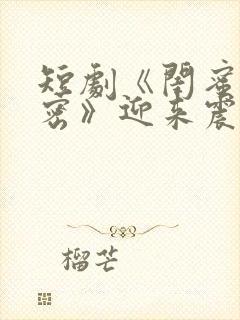 短劇《閏蜜
密》迎来震
榴芒